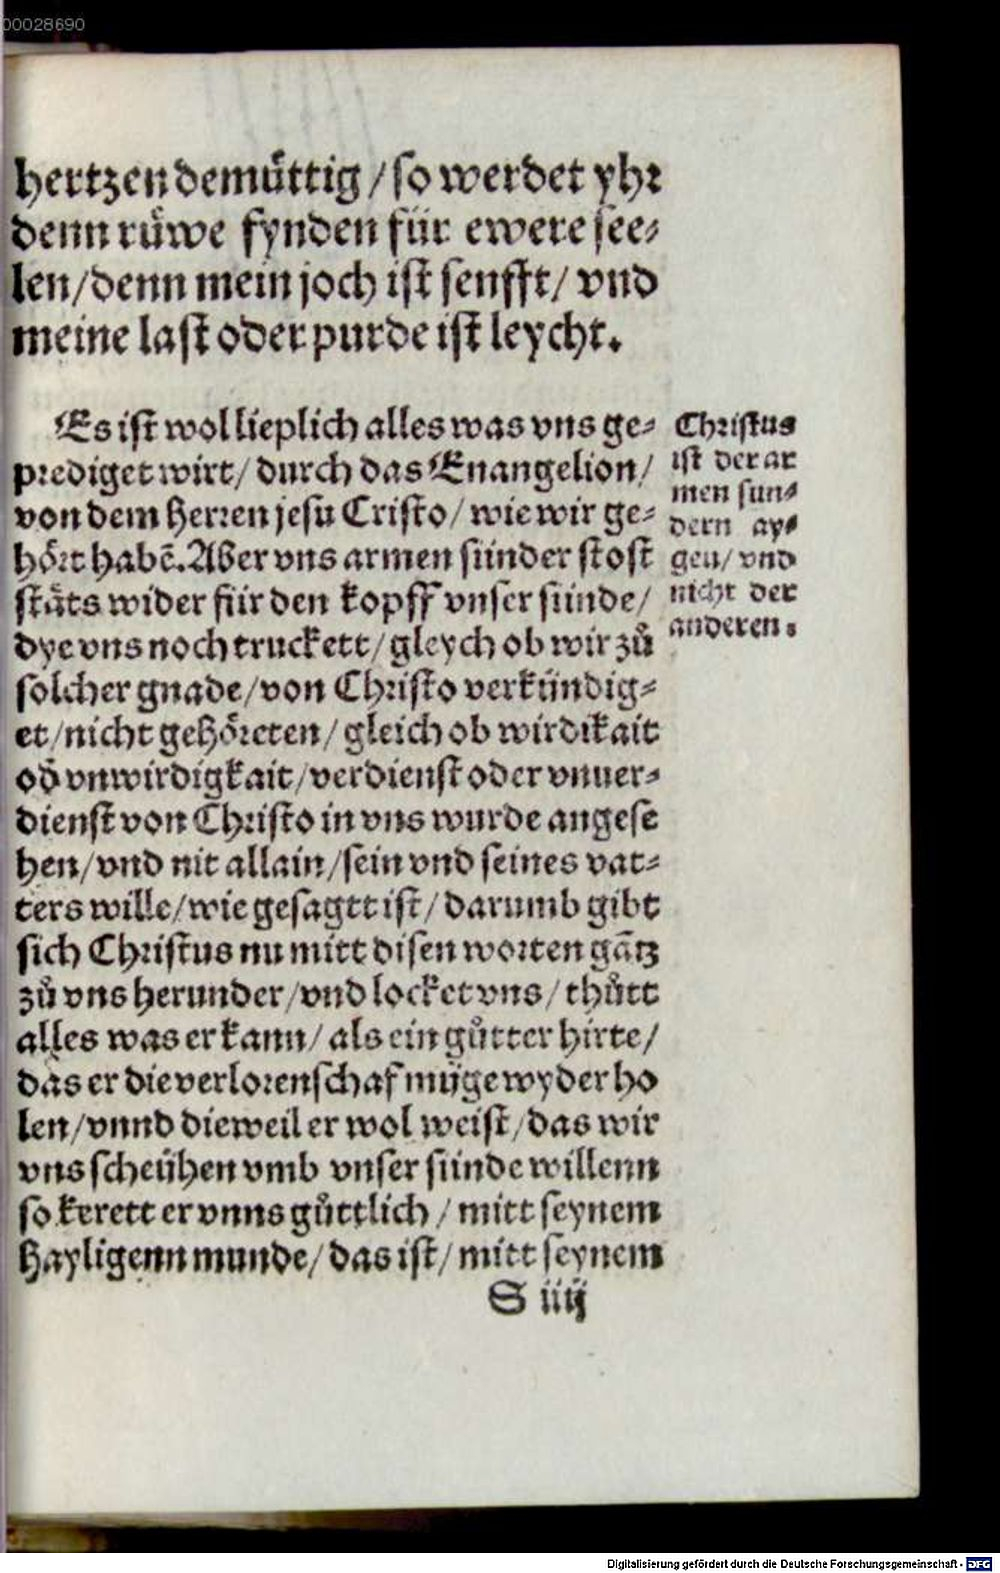 00028690
hertzen demuͤttig / so werdet yhr
denn ruͤwe fynden für ewere see-
len / denn mein joch ist senfft / vnd
meine last oder purde ist leycht.
Es ist wol lieplich alles was vns ge-
prediget wirt / durch das Enangelion /
von dem Herren jesu Cristo / wie wir ge-
hoͤrt habē. Aber vns armen sünder stost
staͤts wider für den kopff vnser sünde /
dye vns noch truckett / gleych ob wir zuͦ
solcher gnade / von Christo verkündig-
et / nicht gehoͤreten / gleich ob wirdikait
od̄ vnwirdigkait / verdienst oder vnuer-
dienst von Christo in vns wurde angese
hen / vnd nit allain / sein vnd seines vat-
ters wille / wie gesagtt ist / darumb gibt
sich Christus nu mitt disen worten gātz
zuͦ vns herunder / vnd locket vns / thuͦtt
alles was er kann / als ein guͦtter hirte /
das er die verlorenschaf müge wyder ho
len / vnnd dieweil er wol weist / das wir
vns scheühen vmb vnser sünde willenn
so kerett er vnns guͤttlich / mitt seynem
Hayligenn munde / das ist / mitt seynem
S iiij
Christus
ist der ar
men sun-
dern ay-
gen / vnd
nicht der
anderen.
Digitalisierung gefördert durch die Deutsche Forschungsgemeinschaft - DFG